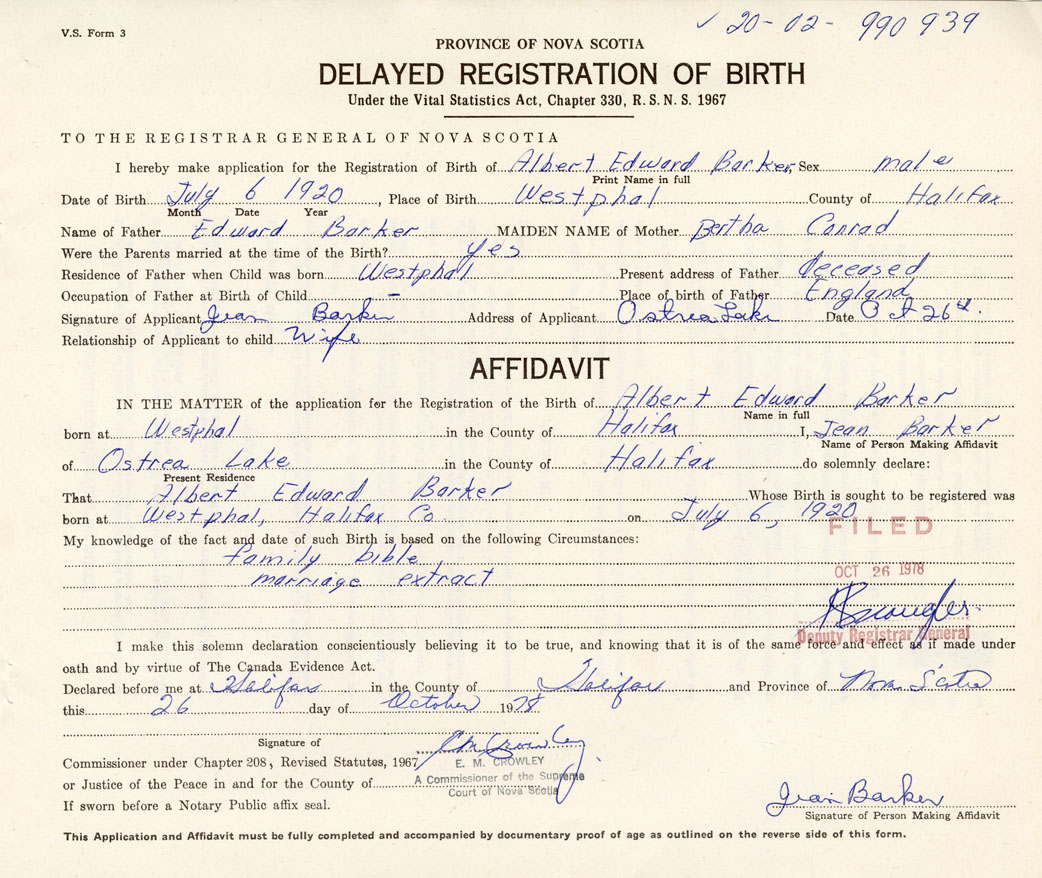 V.S. Form 3
✓ 20-02-990939
PROVINCE OF NOVA SCOTIA
DELAYED REGISTRATION OF BIRTH
Under the Vital Statistics Act, Chapter 330, R.S.N.S. 1967
TO THE REGISTRAR GENERAL OF NOVA SCOTIA
I hereby make application for the Registration of Birth of Albert Edward Barker, Sex male
Print Name in full
Date of Birth July 6 1920, Place of Birth Westphal County of Halifax
Month Date Year
Name of Father Edward Barker MAIDEN NAME of Mother Bertha Conrad
Were the Parents married at the time of the Birth? yes
Residence of Father when Child was born Westphal Present address of Father deceased
Occupation of Father at Birth of Child — Place of birth of Father England
Signature of Applicant Jean Barker Address of Applicant Ostrea Lake Date Oct 26th.
Relationship of Applicant to child Wife
AFFIDAVIT
IN THE MATTER of the application for the Registration of the Birth of Albert Edward Barker
Name in full
born at Westphal in the County of Halifax I, Jean Barker
Name of Person Making Affidavit
of Ostrea Lake in the County of Halifax do solemnly declare:
Present Residence
That Albert Edward Barker Whose Birth is sought to be registered was
born at Westphal, Halifax Co. on July 6, 1920
FILED
My knowledge of the fact and date of such Birth is based on the following Circumstances:
family bible
marriage extract
OCT 26 1978
Deputy Registrar General
I make this solemn declaration conscientiously believing it to be true, and knowing that it is of the same force and effect as if made under
oath and by virtue of The Canada Evidence Act.
Declared before me at Halifax in the County of Halifax and Province of Nova Scotia
this 26 day of October 1978
Signature of
Commissioner under Chapter 208, Revised Statutes, 1967 E. M. CROWLEY
or Justice of the Peace in and for the County of A Commissioner of the Supreme
Court of Nova Scotia
If sworn before a Notary Public affix seal.
Jean Barker
Signature of Person Making Affidavit
This Application and Affidavit must be fully completed and accompanied by documentary proof of age as outlined on the reverse side of this form.